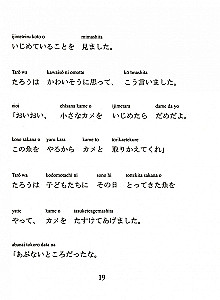 ijimeteiru koto o mimashita
いじめていることを 見ました。
Tarō wa kawaisō ni omotte kō iimashita
たろうは かわいそうに思って、 こう言いました。
oioi chiisana kame o ijimetara dame da yo
「おいおい、 小さなカメを いじめたら だめだよ。
kono sakana o yaru kara kame to torikaetekure
この魚を やるから カメと 取りかえてくれ」
Tarō wa kodomotachi ni sono hi tottekita sakana o
たろうは 子どもたちに その日 とってきた魚を
yatte kame o tasuketeagemashita
やって、 カメを たすけてあげました。
abunai tokoro datta na
「あぶないところだったな。
19